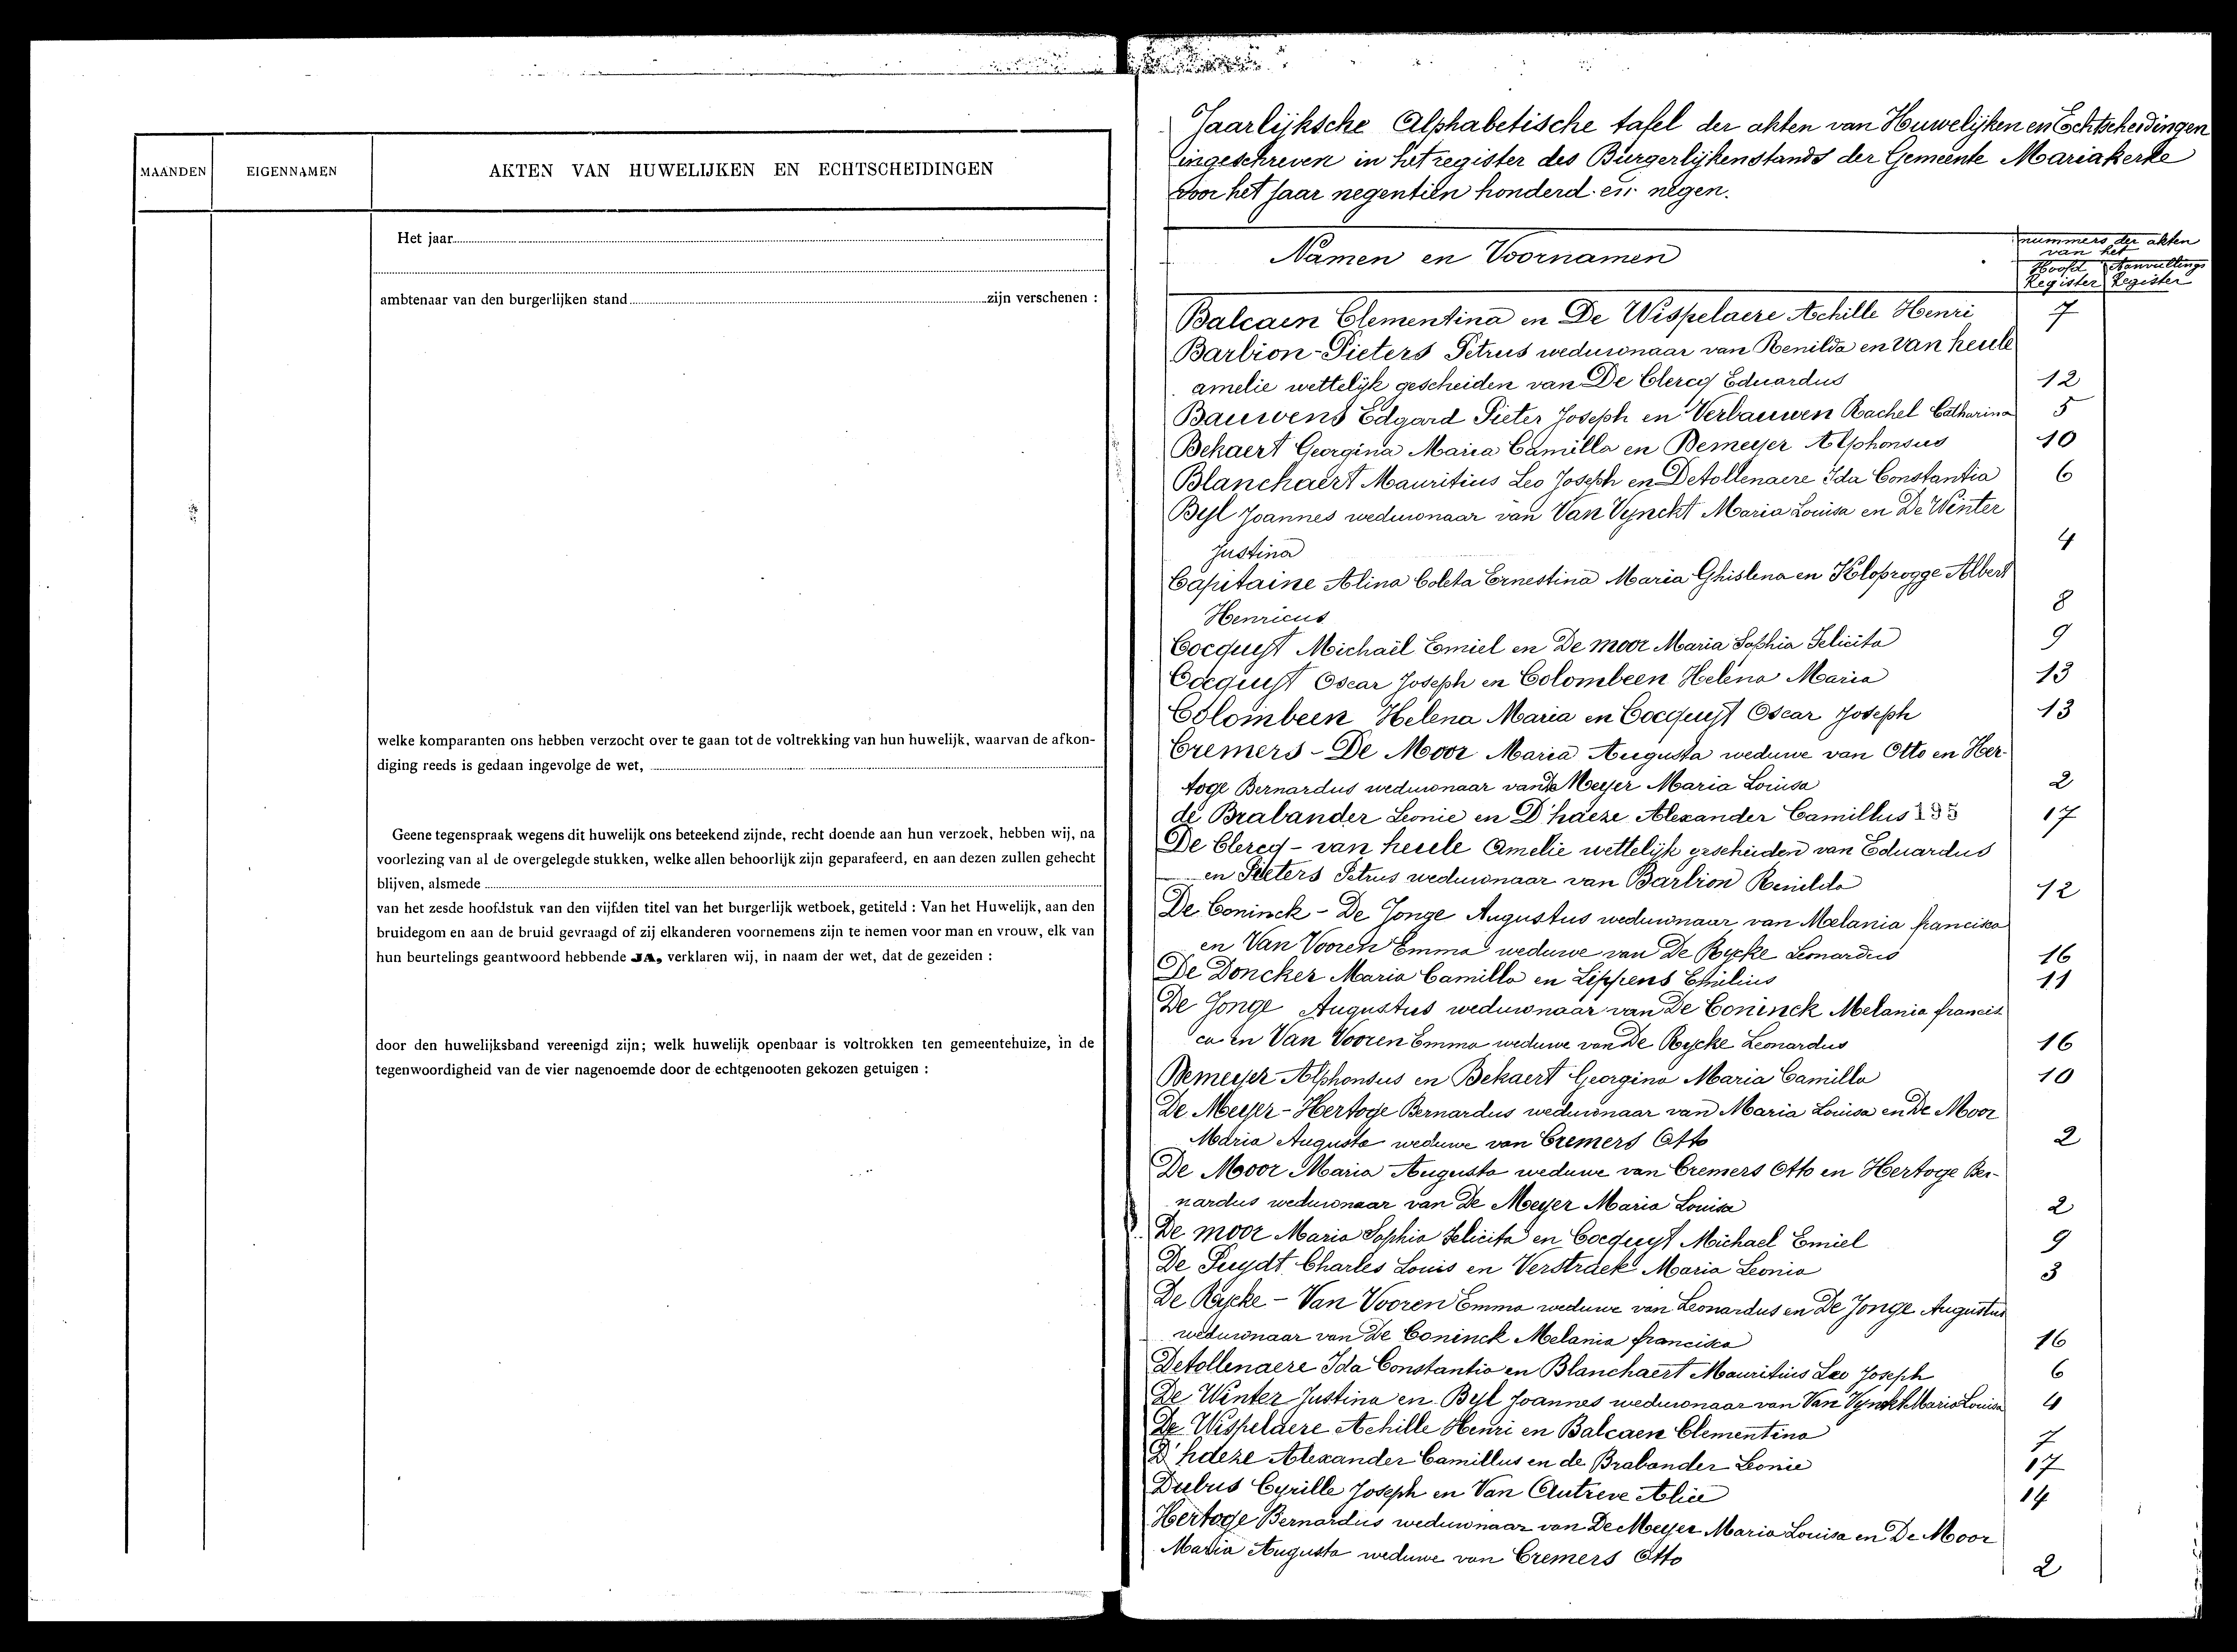 MAANDEN
EIGENNAMEN
AKTEN VAN HUWELIJKEN EN ECHTSCHEIDINGEN
Het jaar
ambtenaar van den burgerlijken stand zijn verschenen :
welke komparanten ons hebben verzocht over te gaan tot de voltrekking van hun huwelijk, waarvan de afkon-
diging reeds is gedaan ingevolge de wet,
Geene tegenspraak wegens dit huwelijk ons beteekend zijnde, recht doende aan hun verzoek, hebben wij, na
voorlezing van al de overgelegde stukken, welke allen behoorlijk zijn geparafeerd, en aan dezen zullen gehecht
blijven, alsmede
van het zesde hoofdstuk van den vijfden titel van het burgerlijk wetboek, getiteld : Van het Huwelijk, aan den
bruidegom en aan de bruid gevraagd of zij elkanderen voornemens zijn te nemen voor man en vrouw, elk van
hun beurtelings geantwoord hebbende JA, verklaren wij, in naam der wet, dat de gezeiden :
door den huwelijksband vereenigd zijn; welk huwelijk openbaar is voltrokken ten gemeentehuize, in de
tegenwoordigheid van de vier nagenoemde door de echtgenooten gekozen getuigen :
Jaarlijksche Alphabetische tafel der akten van Huwelijken en Echtscheidingen
ingeschreven in het register des Burgerlijkenstands der Gemeente Mariakerke
voor het jaar negentien honderd en negen.
Namen en Voornamen
nummers der akten
van het
Hoofd Aanvullings
Register Register
Balcaen Clementina en De Wispelaere Achille Henri 7
Barbion-Pieters Petrus weduwnaar van Renilda en van heule
amelie wettelijk gescheiden van De Clercq Eduardus 12
Bauwens Edgard Pieter Joseph en Verbauwen Rachel Catharina 5
Bekaert Georgina Maria Camilla en Demeyer Alphonsus 10
Blanchaert Mauritius Leo Joseph en Detollenaere Ida Constantia 6
Byl Joannes weduwnaar van Van Vynckt Maria Louisa en De Winter
Justina 4
Capitaine Alina Coleta Ernestina Maria Ghislena en Kloprogge Albert
Henricus 8
Cocquyt Michaël Emiel en De moor Maria Sophia Felicita 9
Cocquyt Oscar Joseph en Colombeen Helena Maria 13
Colombeen Helena Maria en Cocquyt Oscar Joseph 13
Cremers - De Moor Maria Augusta weduwe van Otto en Her-
toge Bernardus weduwnaar van De Meyer Maria Louisa 2
de Brabander Leonie en D'haeze Alexander Camillus 17
De Clercq - van heule Amelie wettelijk gescheiden van Eduardus
en Pieters Petrus weduwnaar van Barbion Renilda 12
De Coninck - De Jonge Augustus weduwnaar van Melania francisca
en Van Vooren Emma weduwe van De Rycke Leonardus 16
De Doncker Maria Camilla en Lippens Emilius 11
De Jonge Augustus weduwnaar van De Coninck Melania francis
ca en Van Vooren Emma weduwe van De Rycke Leonardus 16
Demeyer Alphonsus en Bekaert Georgina Maria Camilla 10
De Meyer - Hertoge Bernardus weduwnaar van Maria Louisa en De Moor
Maria Augusta weduwe van Cremers Otto 2
De Moor Maria Augusta weduwe van Cremers Otto en Hertoge Ber-
nardus weduwnaar van De Meyer Maria Louisa 2
De moor Maria Sophia Felicita en Cocquyt Michael Emiel 9
De Puydt Charles Louis en Verstraek Maria Leonia 3
De Rycke - Van Vooren Emma weduwe van Leonardus en De Jonge Augustus
weduwnaar van De Coninck Melania francisca 16
Detollenaere Ida Constantia en Blanchaert Mauritius Leo Joseph 6
De Winter Justina en Byl Joannes weduwnaar van Van Vynckt Maria Louisa 4
De Wispelaere Achille Henri en Balcaen Clementina 7
D'haeze Alexander Camillus en de Brabander Leonie 17
Dubus Cyrille Joseph en Van Autreve Alice 14
Hertoge Bernardus weduwnaar van De Meyer Maria Louisa en De Moor
Maria Augusta weduwe van Cremers Otto 2